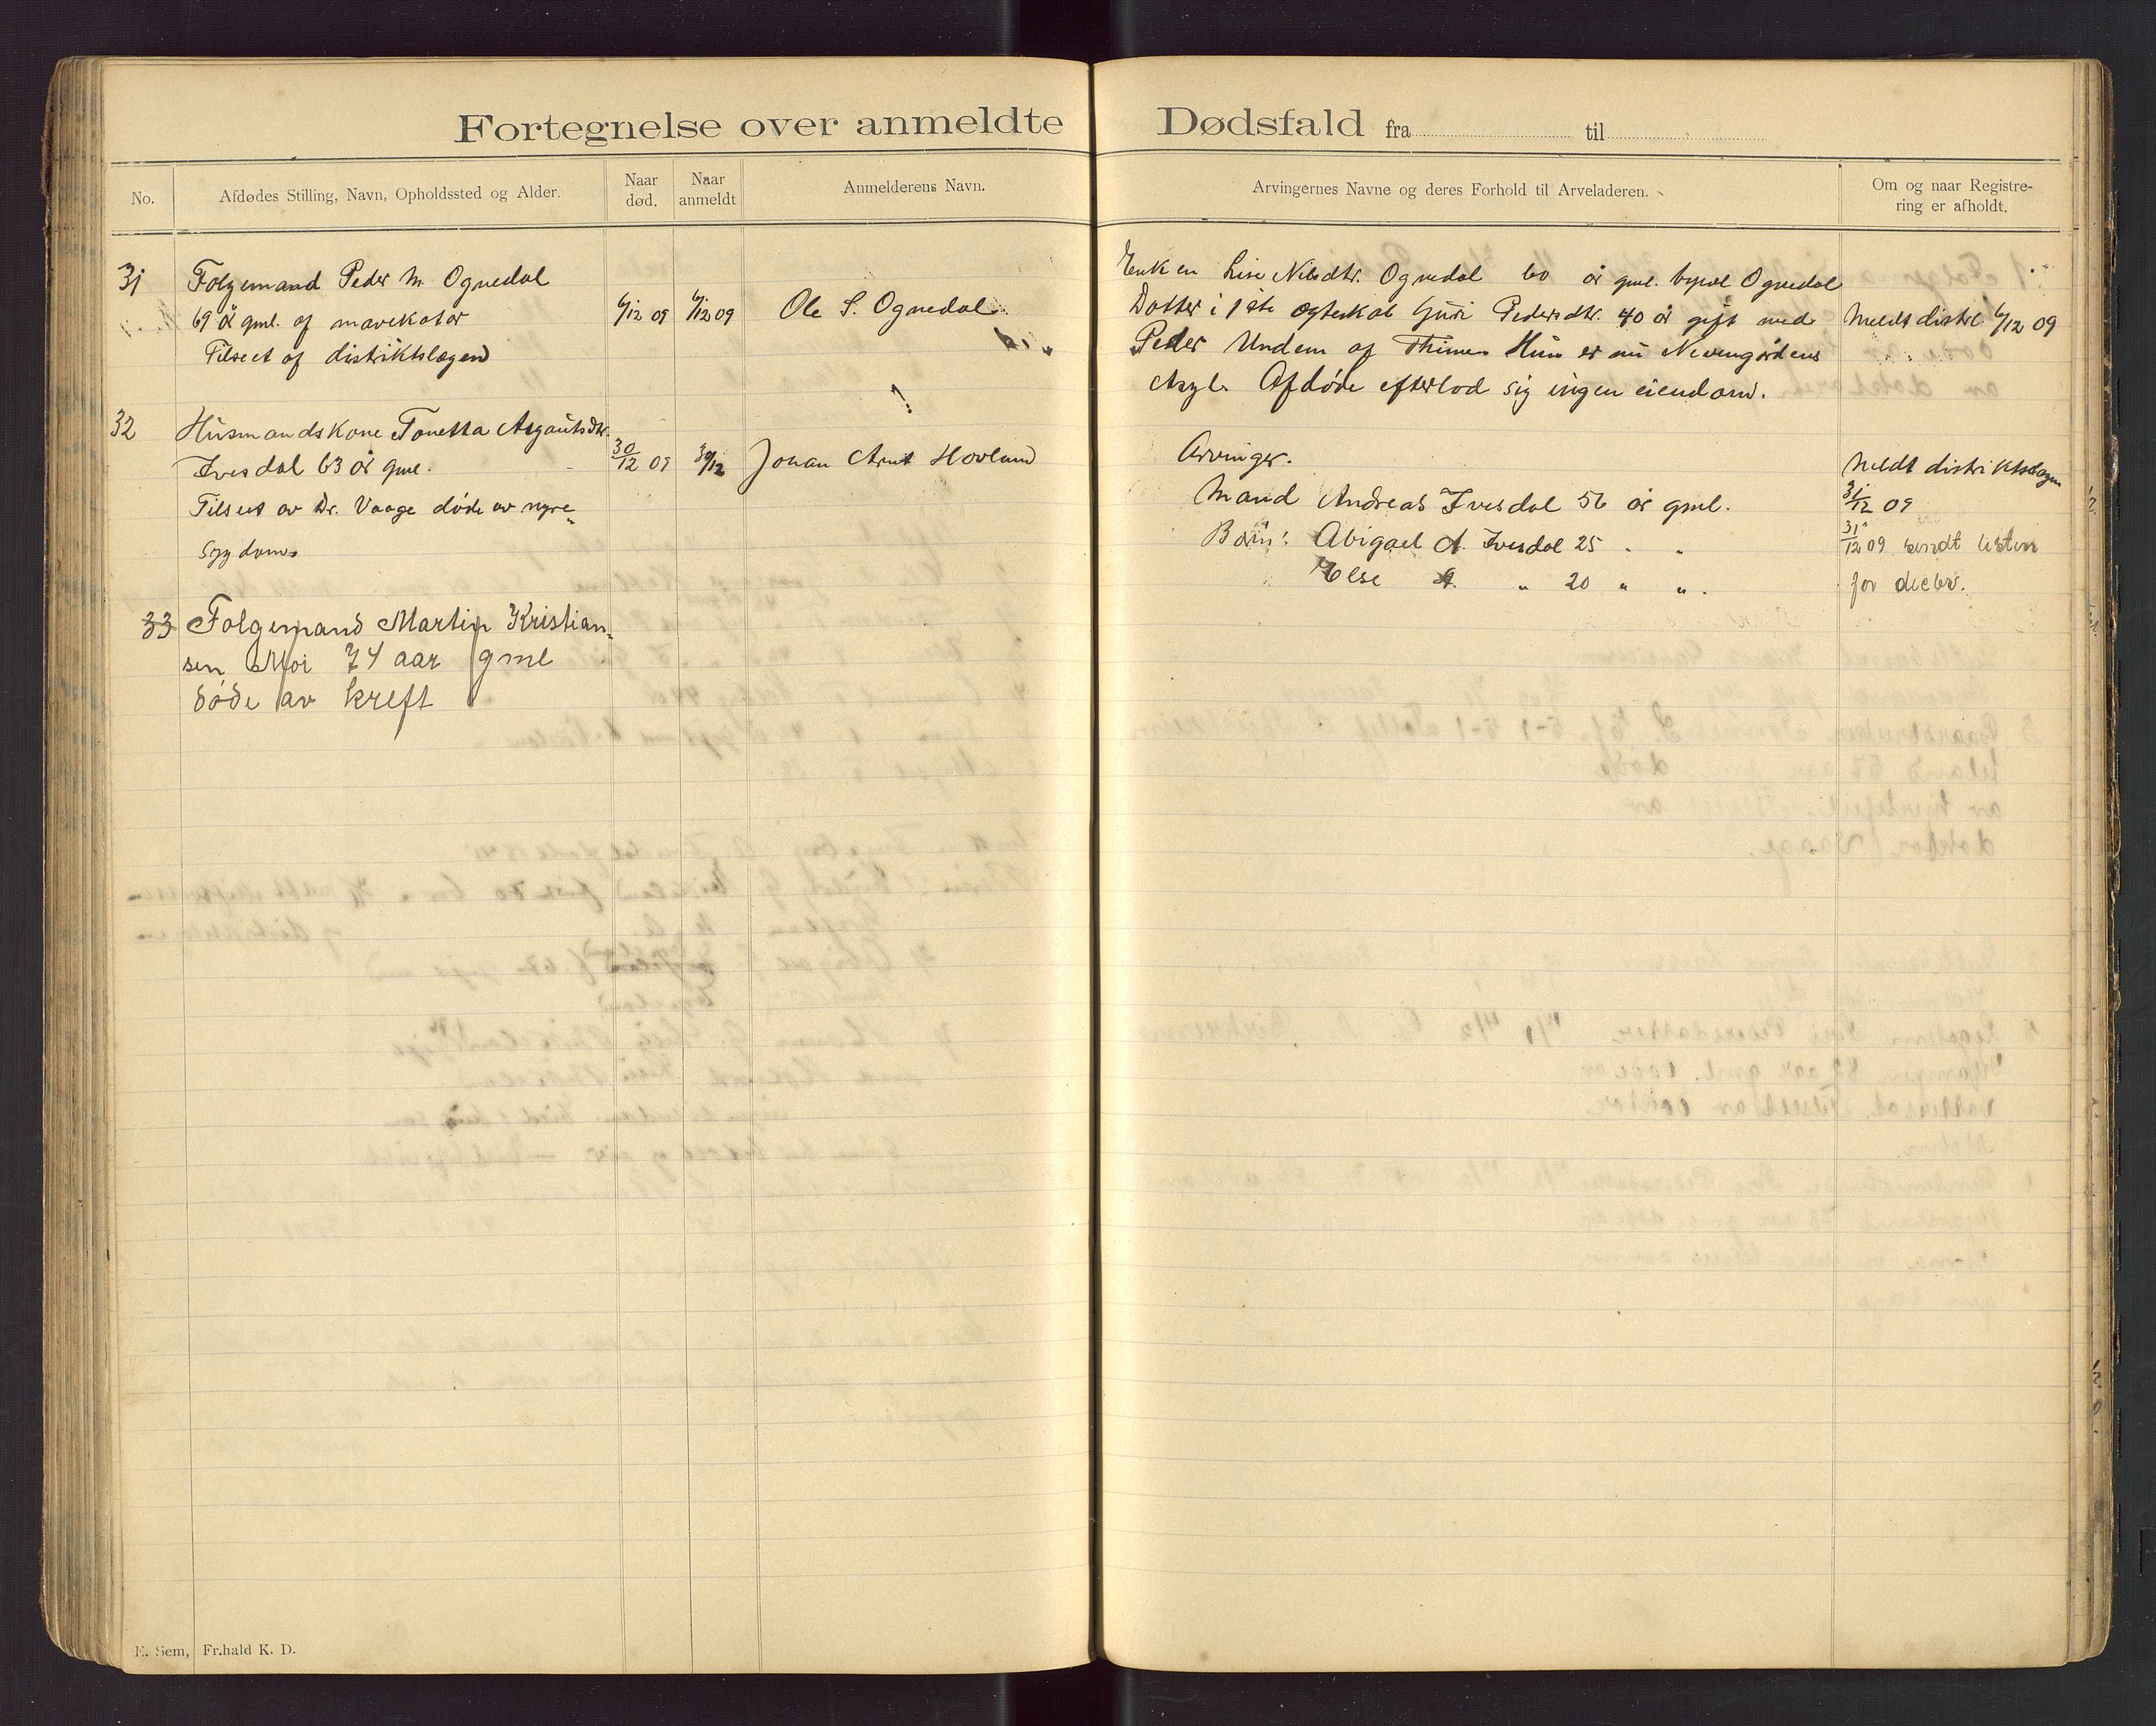 Fortegnelse over anmeldte Dødsfald fra til
No.
Afdødes Stilling, Navn, Opholdssted og Alder.
Naar død.
Naar anmeldt
Anmelderens Navn.
Arvingernes Navne og deres Forhold til Arveladeren.
Om og naar Registre-
ring er afholdt.
31
Følgemand Peder M. Ognedal
69 år gml. af mavekatar
Tilseet af distriktslægen
6/12 09
6/12 09
Ole S. Ognedal.
Enken Lise Nilsdtr. Ognedal 60 år gml. Ognedal
Datter i 1ste ægteskab Guri Pedersdtr. 40 år gift med
Peder Undem af Thime. Hun er nu
Asyl. Afdøde efterlod sig ingen eiendom.
Meldt distrl. 6/12 09
32
Husmandskone Tonetta Asgautsdtr.
Ivesdal 63 år gml.
Tilseet av Dr. Vaage døde av nyre-
sygdom.
30/12 09
30/12
Johan Arnt Hovland
Arvinger.
Mand Andreas Ivesdal 56 år gml.
Børn: Abigael A. Ivesdal 25 " "
Else A. " 20 " " .
Meldt distriktslægen
31/12 09
31/12 09 sendt listen
for decbr.
33
Følgemand Martin Kristian-
sen Moi 74 aar gml
døde av kreft
E. Sem, Fr.hald K. D.